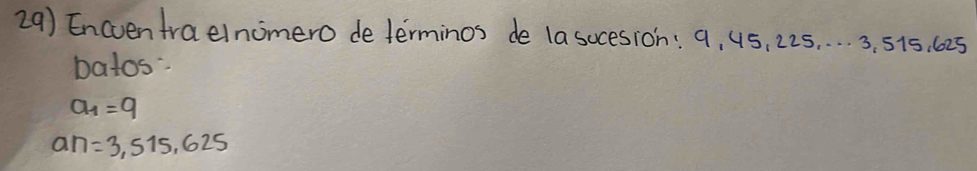 29) Encuentra el número de términos de la sucesión: 9, 45, 225, ... 3, 515, 625
Datos:
a1 = 9
an = 3, 515, 625